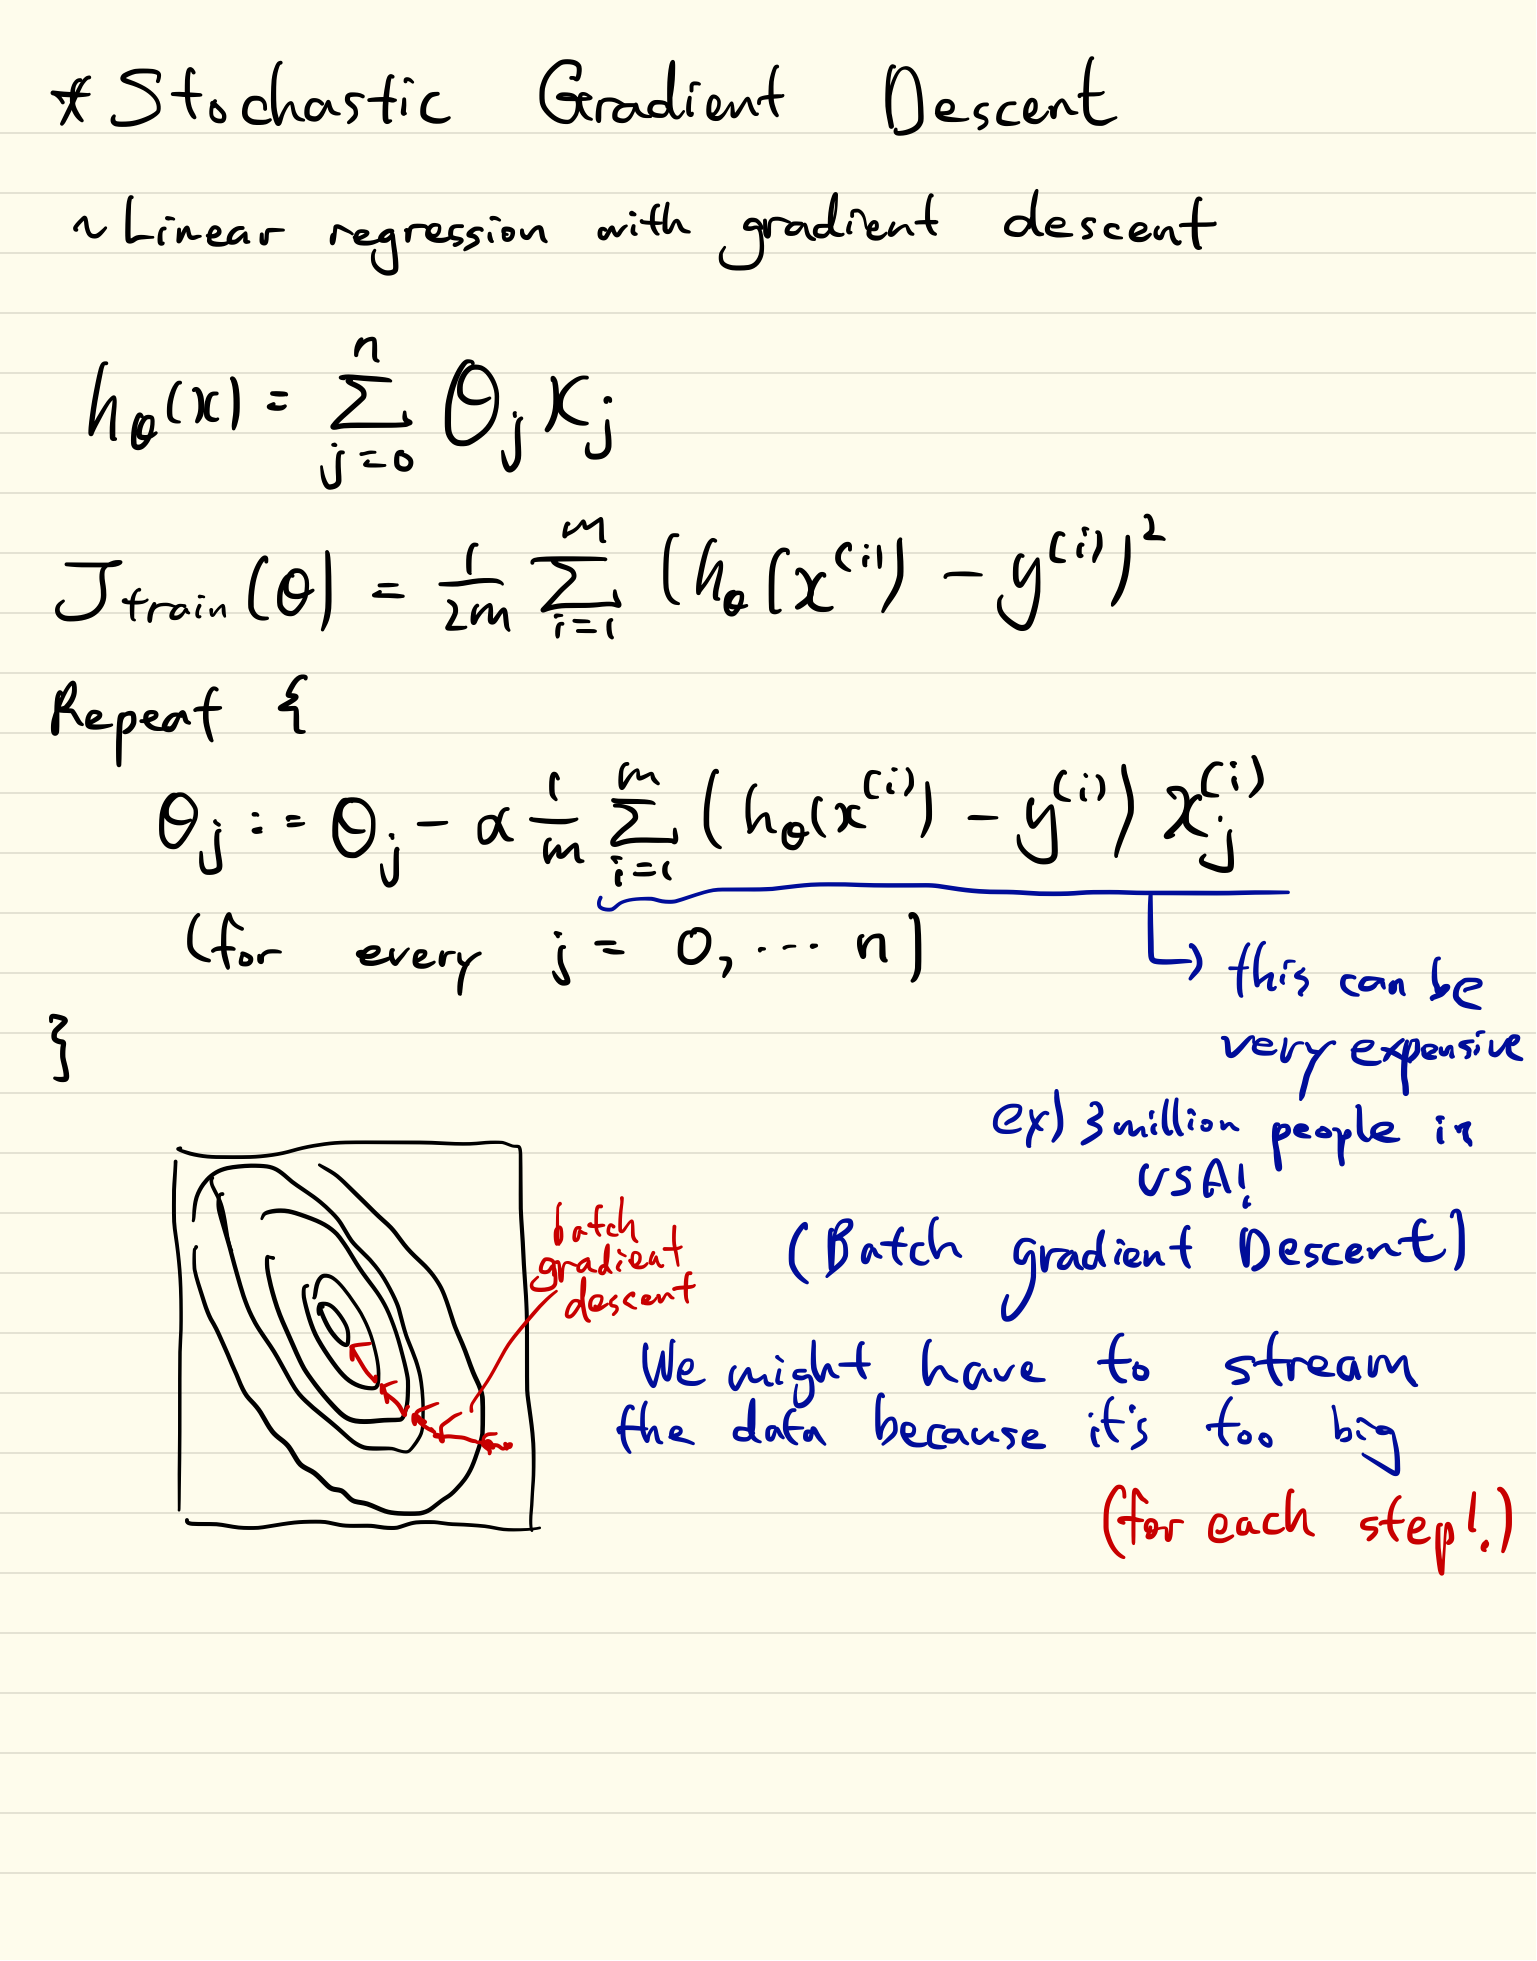 * Stochastic Gradient Descent
~ Linear regression with gradient descent
hθ(x) = Σ_{j=0}^{n} θ_j x_j
J_train(θ) = 1/2m Σ_{i=1}^{m} (hθ(x^(i)) - y^(i))^2
Repeat {
θ_j := θ_j - α 1/m Σ_{i=1}^{m} (hθ(x^(i)) - y^(i)) x_j^(i)
(for every j = 0, ... n)
this can be
very expensive
}
ex) 3 million people in
USA!
batch
gradient
descent
(Batch gradient Descent)
We might have to stream
the data because it's too big
(for each step!.)